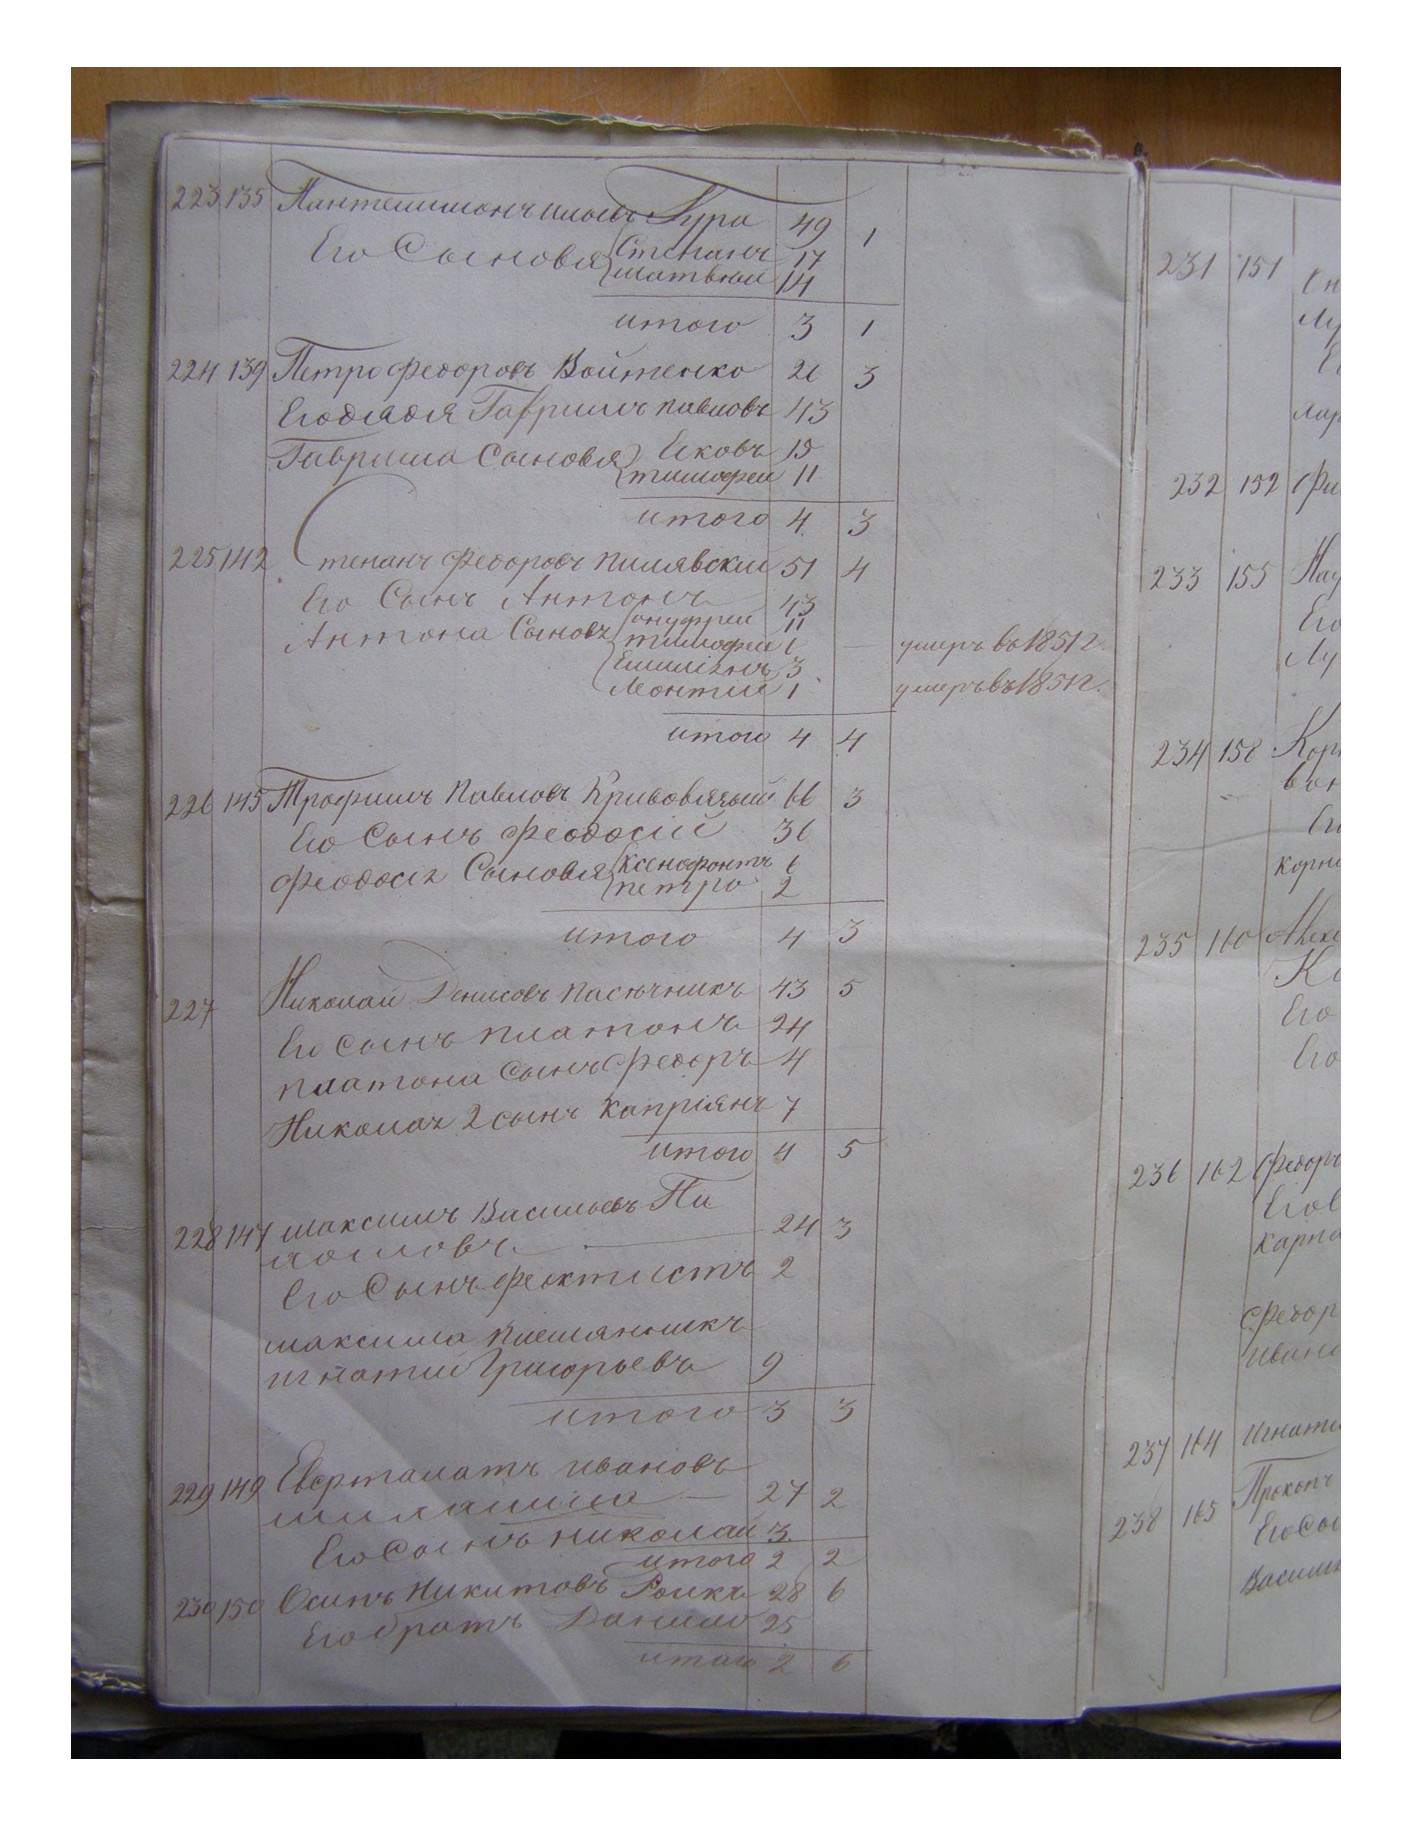 223 135 Пантелимонъ Ильевъ Гура 49 1
Его Сыновя Степанъ 17
Матвѣй 14
итого 3 1
224 139 Петро Федоровъ Войтенко 26 3
Его дядя Гаврилъ Павловъ 43
Гаврила Сыновя Яковъ 15
Тимофей 11
итого 4 3
225 142 Степанъ Федоровъ Пилявский 51 4
Его Сынъ Антонъ 43
Антона Сыновъ Онуфрей 11
Тимофей 6 — умеръ въ 1851 г.
Емилiянъ 3
Леонтий 1 умеръ въ 1851 г.
итого 4 4
226 145 Трофимъ Павловъ Кривовязый 66 3
Его Сынъ Феодосiй 36
Феодосiя Сыновя Ксенофонтъ 6
Петро 2
итого 4 3
227 Николай Денисовъ Пасѣчникъ 43 5
Его Сынъ Платонъ 24
Платона Сынъ Федоръ 4
Николая 2 сынъ Каприянъ 7
итого 4 5
228 147 Максимъ Васильевъ 24 3
Его Сынъ Феоктистъ 2
Максима племянникъ
Игнатий Григорьевъ 9
итого 3 3
229 149 Ивановъ
27 2
Его Сынъ Николай 3
итого 2 2
230 150 Осипъ Никитовъ 28 6
Его братъ Данило 25
итого 2 6
231 151
232 152
233 155
Его
234 158
Его
235 160
Его
Его
236 162 Федоръ
Федор
Ивана
237 164 Игнати
238 165 Прокопъ
Его Сы
Васили